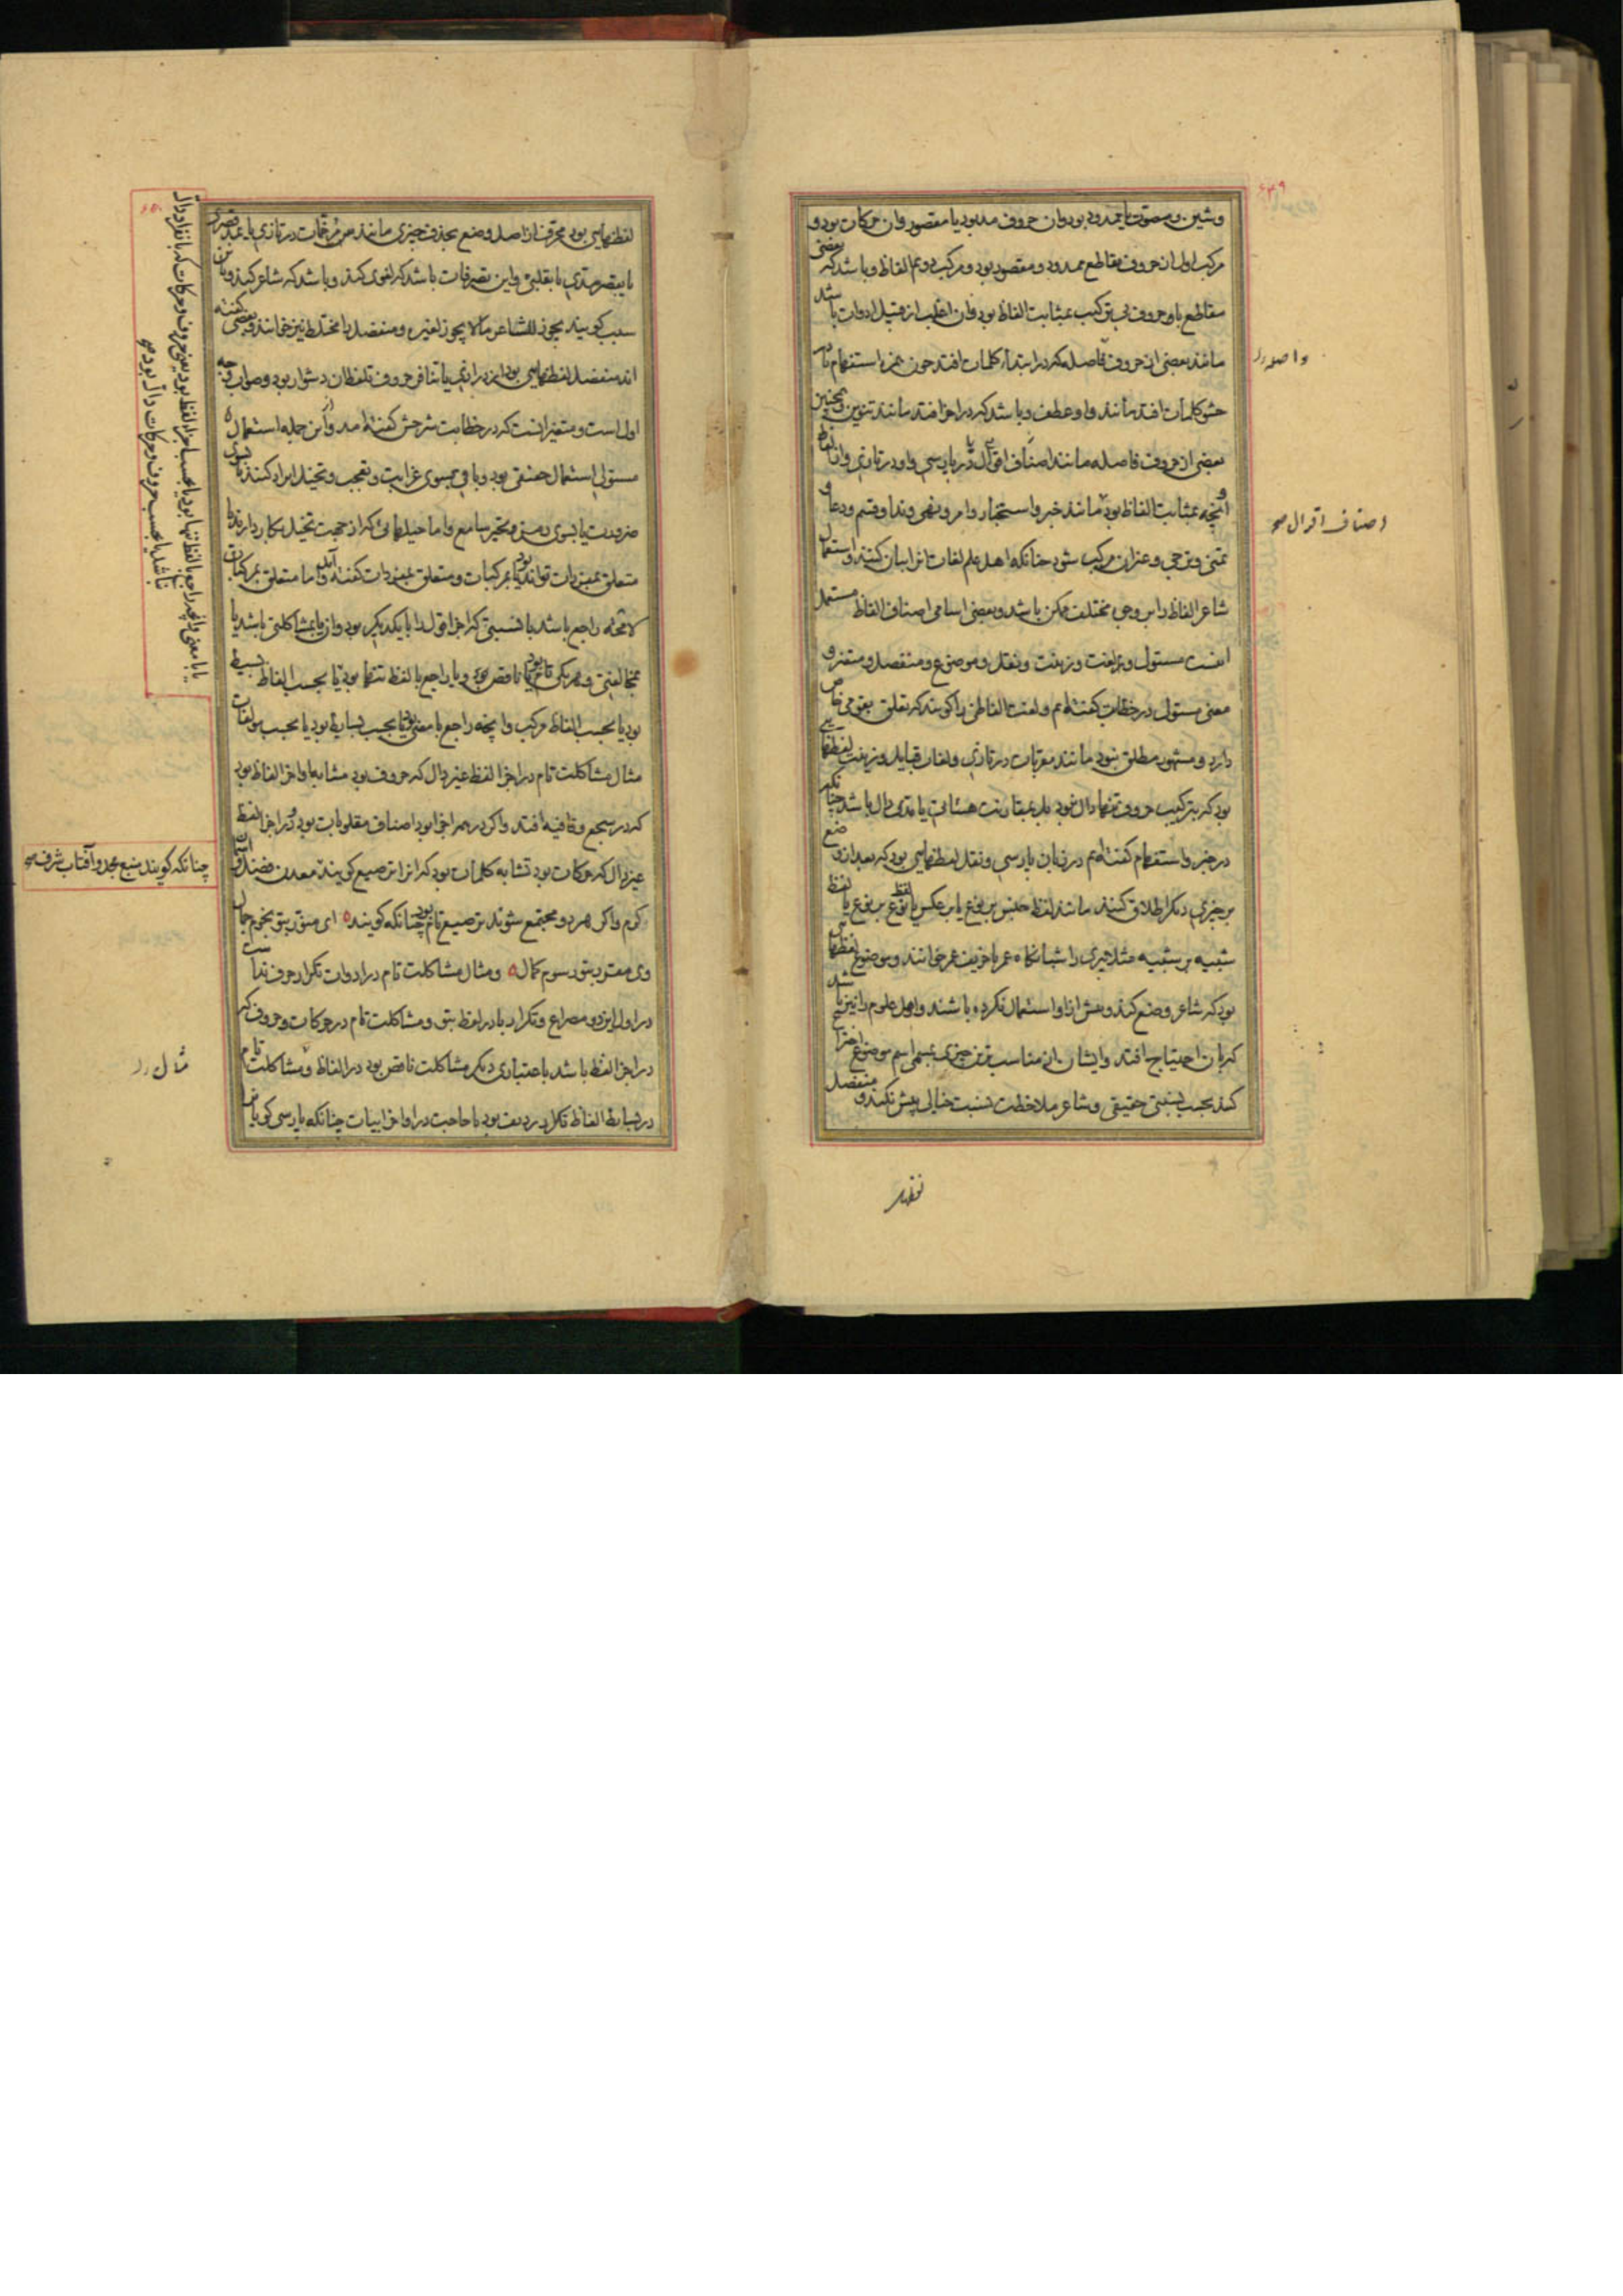 ۶۴۹
و شین و مصوت یا ممدود بود وان حروف مد بود یا مقصور وان حرکات بود و
مرکب اول ان حروف مقاطع ممدود و مقصور بود و مرکب دوم الفاظ و باشد که بعضی
مقاطع یا حروف بی ترکیب بمثابت الفاظ بود وان اغلب از قبیل ادوات باشد
مانند بعضی از حروف فاصله که در ابتداء کلمات افتد چون همزه استفهام یا در
حشو کلمات افتد مانند واو عطف و باشد که در اخر افتد مانند تنوین و همچنین
بعضی از حروف فاصله مانند اصناف اقوال در پارسی و او در تازی وان الفاظ
و انچه بمثابت الفاظ بود مانند خبر و استخبار و امر و نهی و ندا و قسم و دعا و
تمنی و ترجی و غیر ان مرکب شود چنانکه اهل علم لغات انرا بیان کنند و استعمال
شاعر الفاظ را بر وجهی مختلف ممکن باشد و بعضی اسامی اصناف الفاظ مستعمل
اینست مستولی و لغت و زینت و نقل و موضوع و منفصل و متغیر و
معنی مستولی در خطابت کفته‌ایم و لغت الفاظی را کویند که تعلق بقومی خاص
دارد و مشهور مطلق نبود مانند معربات در تازی و لغات قبایل و زینت لفظهایی
بود که بترکیب حروف تنها دال نبود بل بمقارنت هیئاتی یا مدی دال باشد چنانکه
در خبر و استفهام کفته‌ایم در زبان پارسی و نقل لفظهایی بود که بعد از وضع
بر چیزی دیکر اطلاق کنند مانند لفظ جنس بر نوع یا بر عکس یا لفظ نوع بر نوع یا لفظ
شبیه بر شبیه مثلا پیری را شبانکاه عمر یا خریف عمر خوانند و موضوع لفظهایی
بود که شاعر وضع کند و پیش از او استعمال نکرده باشند و اهل علوم را نیز باشد
که بان احتیاج افتد و ایشان از مناسب ترین چیزی بمسمی اسم موضوع اختراع
کنند بحسب نسبتی حقیقی و شاعر ملاحظت نسبت خیالی پیش نکند و منفصل
واصله را
اصناف اقوال صح
لفظهایی
۶۵۰
لفظهایی بود محرف از اصل وضع بحذف چیزی مانند مرخمات در تازی یا بمد قصری
یا بقصر مدی یا بقلبی و این تصرفات باشد که لغوی کند و باشد که شاعر کند و باین
سبب کویند یجوز للشاعر ما لا یجوز لغیره و منفصل یا مختلط نیز خوانند و بعضی کفته
اند منفصل لفظهایی بود
اول است و متغیر انست که در خطابت شرحش کفته امد و از این جمله استعمال
مستولی استعمال حقیقی بود و باقی بسوی غرابت و تعجب و تخییل ایراد کنند یا بسوی
ضرورت یا بسوی رمز و تحیر سامع و اما حیلهایی که از جهت تخییل بکار دارند یا
متعلق بمفردات تواند بود یا بمرکبات و متعلق بمفردات کفته امد و اما متعلق بمرکبات
لا محاله راجع باشد با نسبتی که اجزا قول را با یکدیکر بود وان یا بمشاکلتی باشد یا
بمخالفتی و هر یکی تام بود یا ناقص بود و یا راجع با لفظ تنها بود یا بحسب الفاظ بسیط
بود یا بحسب الفاظ مرکب و انچه راجع با معنی بود یا بحسب بسایط بود یا بحسب مولفات
مثال مشاکلت تام در اجزا لفظ غیر دال که حروف بود مشابها واخر الفاظ بود
که در سجع و قافیه افتد و اکر در همه اجزا بود اصناف مقلوبات بود و در اجزا لفظ
غیر دال که حرکات بود تشابه کلمات بود که انرا ترصیع کویند معدن فضل و اسمان
کرم و اکر هر دو مجتمع شوند ترصیع تام بود چنانکه کویند ه ای منور بتو نجوم جمال
وی مقرر بتو رسوم کمال ه و مثال مشاکلت تام در ادوات تکرار حرف نداست
در اول این دو مصراع و تکرار با در لفظ بتو و مشاکلت تام در حرکات و حروف که
در اجزا لفظ باشد باعتباری دیکر مشاکلت ناقص بود در الفاظ و مشاکلت تام
در بسایط الفاظ تکرار ردیف بود یا حاجب در اواخر ابیات چنانکه پارسی کویان
چنانکه کویند منبع مجد و آفتاب شرف صح
مثال را